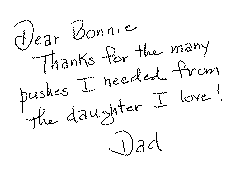 Dear Bonnie
Thanks for the many
pushes I needed from
the daughter I love!
Dad